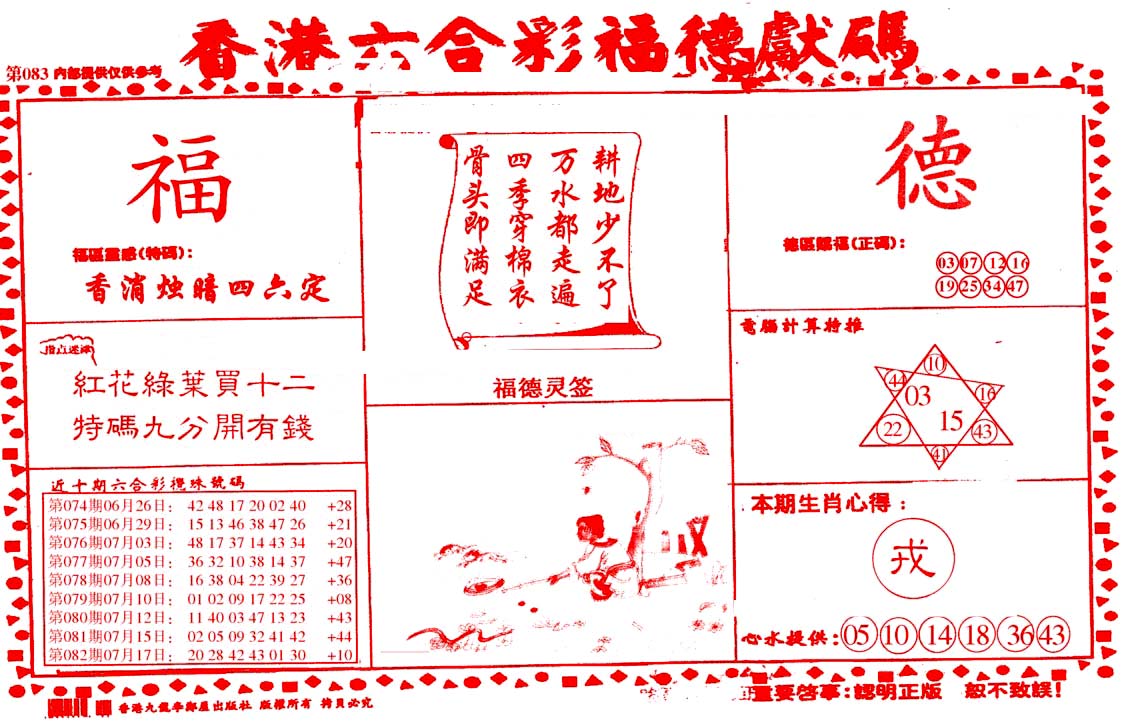 香港六合彩福德獻碼
第083 内部提供仅供参考
福
福區靈感(特碼):
香消烛暗四六定
指点迷津
紅花綠葉買十二
特碼九分開有錢
近十期六合彩攪珠號碼
第074期06月26日: 42 48 17 20 02 40 +28
第075期06月29日: 15 13 46 38 47 26 +21
第076期07月03日: 48 17 37 14 43 34 +20
第077期07月05日: 36 32 10 38 14 37 +47
第078期07月08日: 16 38 04 22 39 27 +36
第079期07月10日: 01 02 09 17 22 25 +08
第080期07月12日: 11 40 03 47 13 23 +43
第081期07月15日: 02 05 09 32 41 42 +44
第082期07月17日: 20 28 42 43 01 30 +10
耕地少不了
万水都走遍
四季穿棉衣
骨头即满足
福德灵签
德
德區賜福(正碼):
03 07 12 16
19 25 34 47
電腦計算特推
10
44
03
16
15
22
43
41
本期生肖心得:
戎
心水提供: 05 10 14 18 36 43
香港九龍李鄭屋出版社 版權所有 拷貝必究
重要啓事:認明正版 恕不致誤!